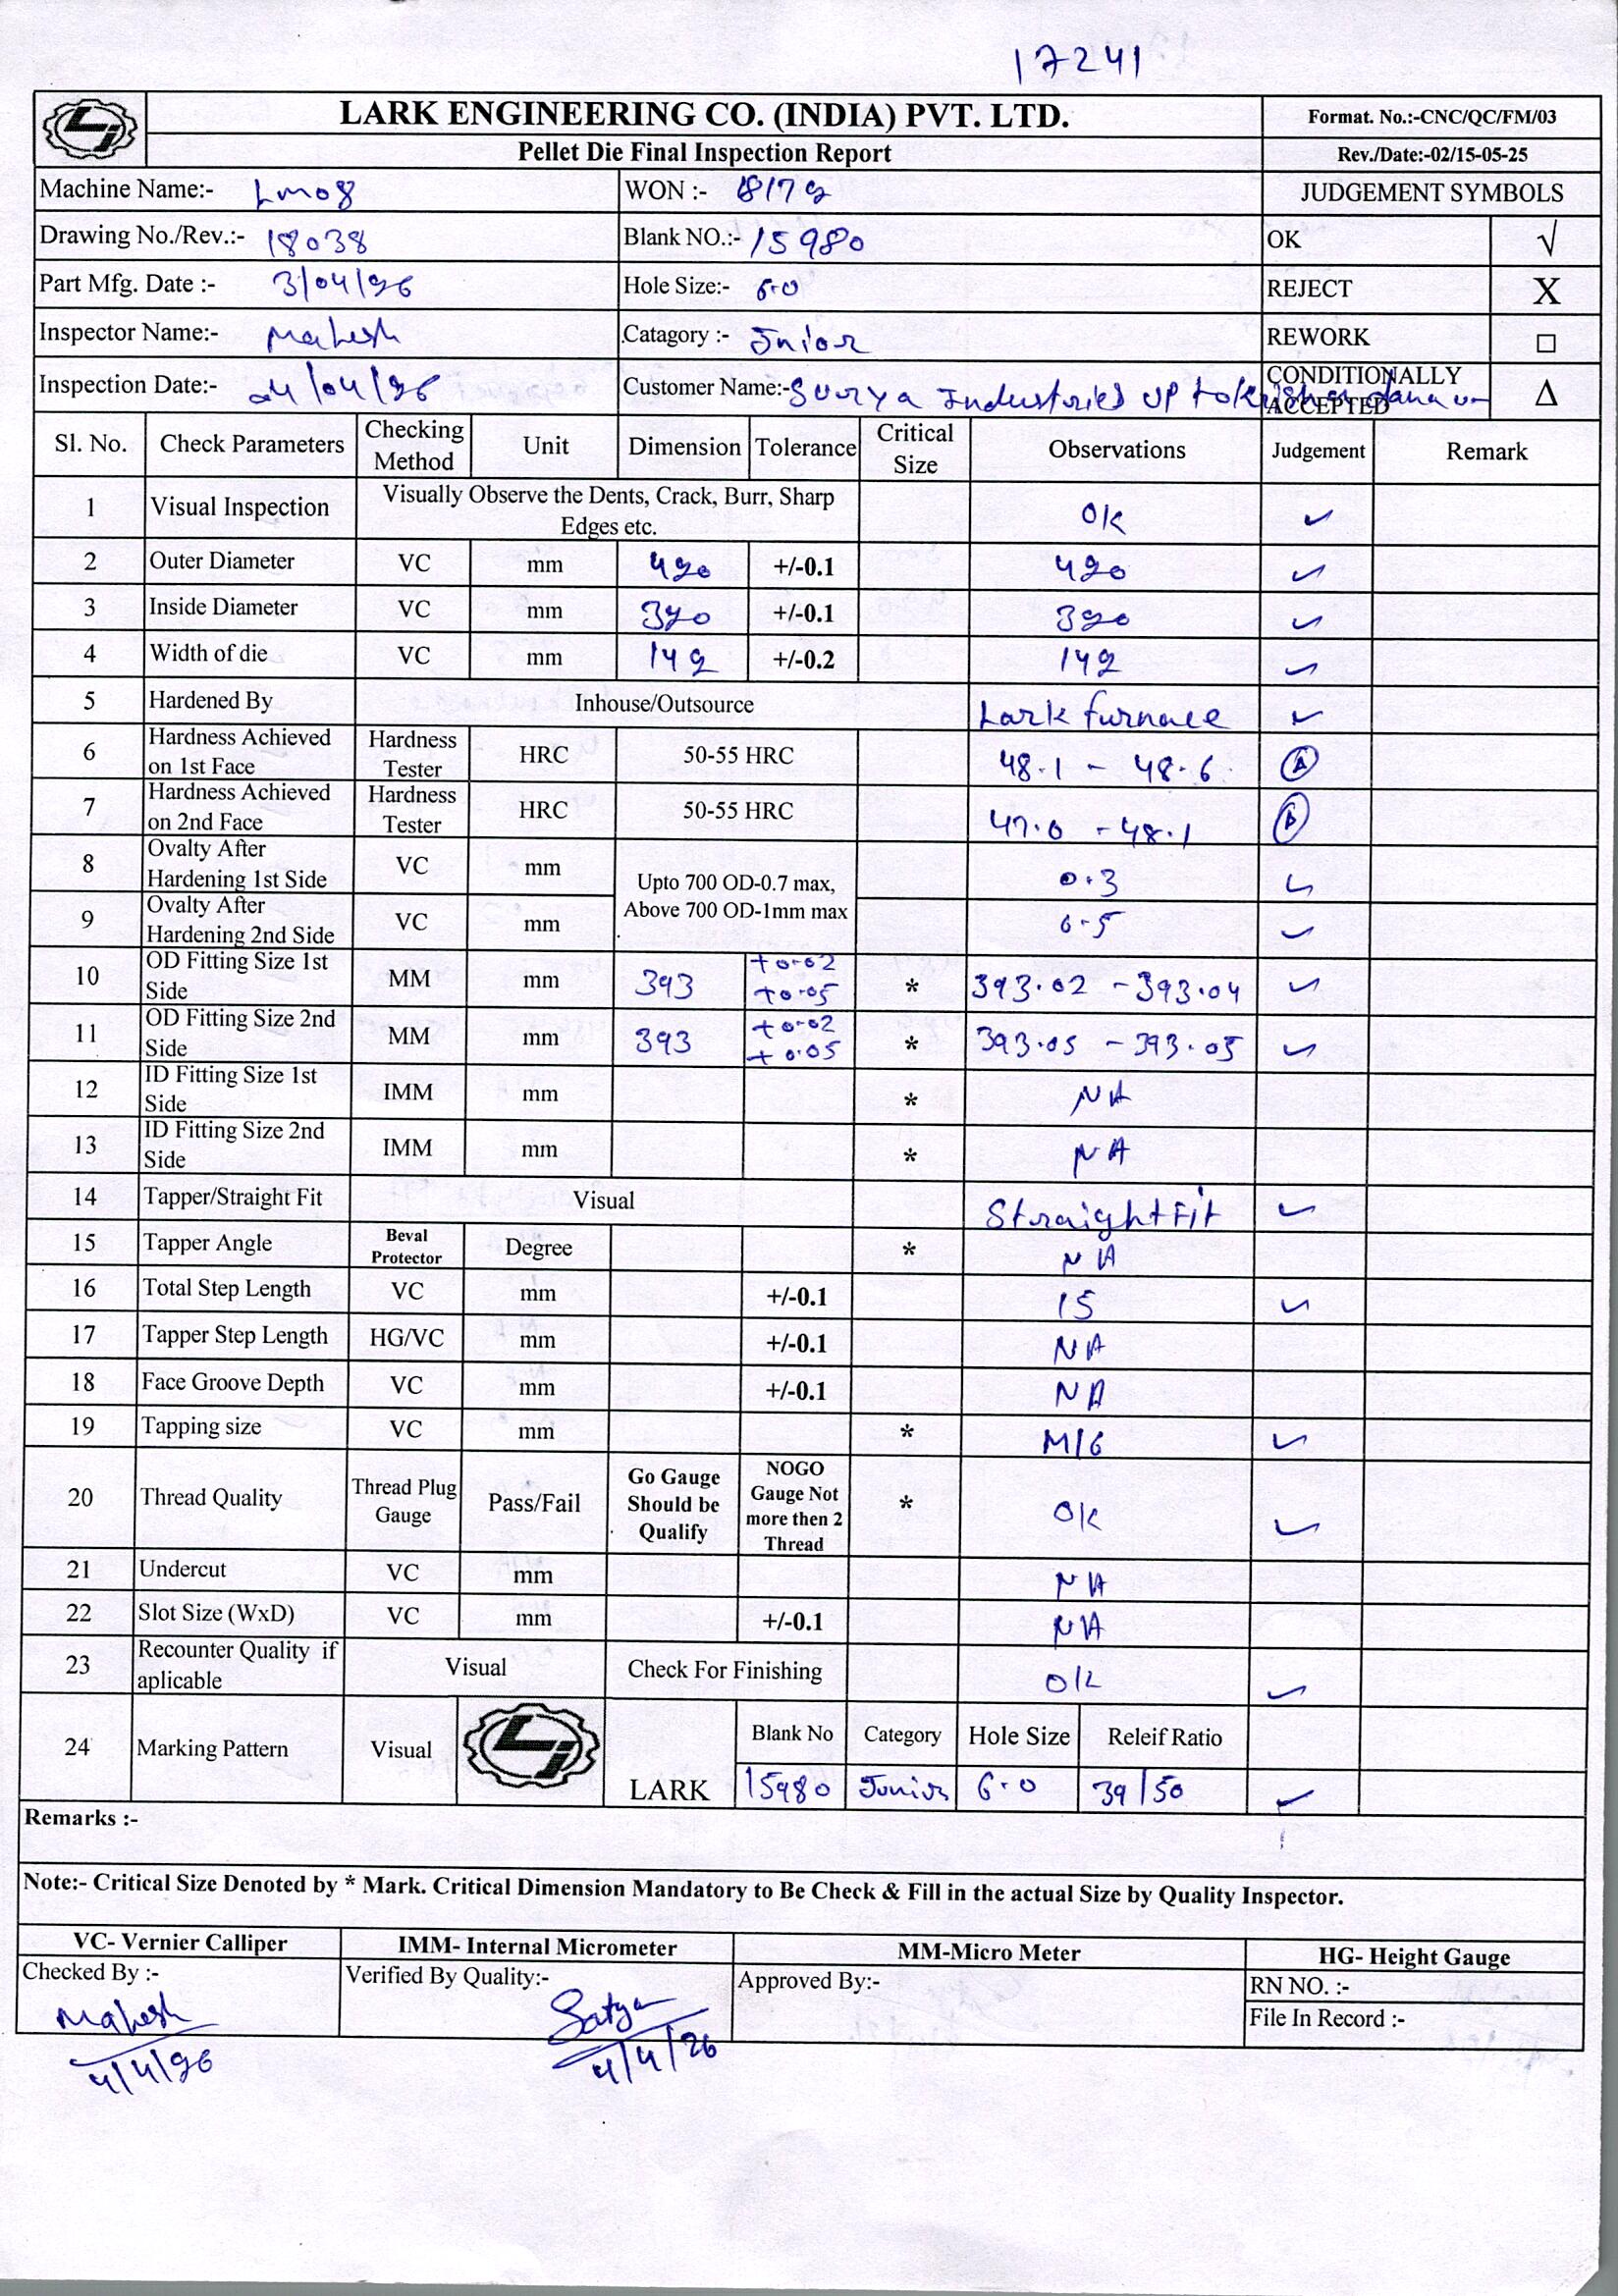 17241
LARK ENGINEERING CO. (INDIA) PVT. LTD.
Format. No.:-CNC/QC/FM/03
Pellet Die Final Inspection Report
Rev./Date:-02/15-05-25
Machine Name:- Lm08 WON :- 8172 JUDGEMENT SYMBOLS
Drawing No./Rev.:- 18038 Blank NO.:- 15980 OK √
Part Mfg. Date :- 3/04/26 Hole Size:- 6.0 REJECT X
Inspector Name:- Mahesh Catagory :- Junior REWORK □
Inspection Date:- 04/04/26 Customer Name:- Surya Industries UP CONDITIONALLY ACCEPTED Δ
Sl. No. Check Parameters Checking Method Unit Dimension Tolerance Critical Size Observations Judgement Remark
1 Visual Inspection Visually Observe the Dents, Crack, Burr, Sharp Edges etc. OK ✓
2 Outer Diameter VC mm 420 +/-0.1 420 ✓
3 Inside Diameter VC mm 320 +/-0.1 320 ✓
4 Width of die VC mm 142 +/-0.2 142 ✓
5 Hardened By Inhouse/Outsource Lark furnace ✓
6 Hardness Achieved on 1st Face Hardness Tester HRC 50-55 HRC 48.1 - 48.6
7 Hardness Achieved on 2nd Face Hardness Tester HRC 50-55 HRC 47.0 - 48.1
8 Ovalty After Hardening 1st Side VC mm Upto 700 OD-0.7 max, Above 700 OD-1mm max 0.3 ✓
9 Ovalty After Hardening 2nd Side VC mm 0.5 ✓
10 OD Fitting Size 1st Side MM mm 393 +0.02 +0.05 * 393.02 - 393.04 ✓
11 OD Fitting Size 2nd Side MM mm 393 +0.02 +0.05 * 393.05 - 393.05 ✓
12 ID Fitting Size 1st Side IMM mm * NA
13 ID Fitting Size 2nd Side IMM mm * NA
14 Tapper/Straight Fit Visual Straight Fit ✓
15 Tapper Angle Beval Protector Degree * NA
16 Total Step Length VC mm +/-0.1 15 ✓
17 Tapper Step Length HG/VC mm +/-0.1 NA
18 Face Groove Depth VC mm +/-0.1 NA
19 Tapping size VC mm * M16 ✓
20 Thread Quality Thread Plug Gauge Pass/Fail Go Gauge Should be Qualify NOGO Gauge Not more then 2 Thread * OK ✓
21 Undercut VC mm NA
22 Slot Size (WxD) VC mm +/-0.1 NA
23 Recounter Quality if aplicable Visual Check For Finishing OK ✓
24 Marking Pattern Visual LARK Blank No Category Hole Size Releif Ratio
15980 Junior 6.0 39/50 ✓
Remarks :-
Note:- Critical Size Denoted by * Mark. Critical Dimension Mandatory to Be Check & Fill in the actual Size by Quality Inspector.
VC- Vernier Calliper IMM- Internal Micrometer MM-Micro Meter HG- Height Gauge
Checked By :- Verified By Quality:- Approved By:- RN NO. :-
File In Record :-
Mahesh Satya
4/4/26 4/4/26